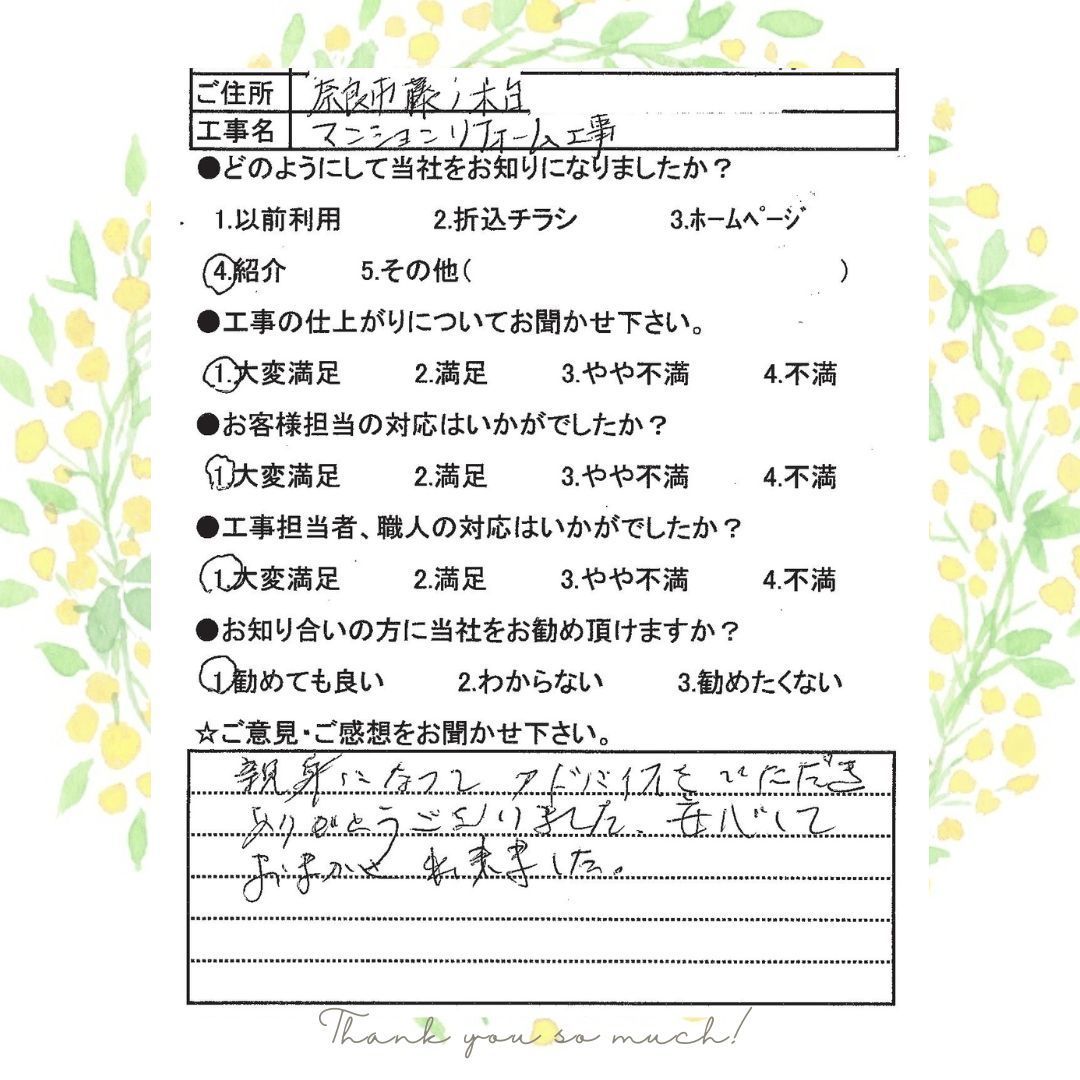 ご住所 奈良市藤ノ木台
工事名 マンションリフォーム工事
●どのようにして当社をお知りになりましたか？
1.以前利用 2.折込チラシ 3.ホームページ
4.紹介 5.その他( )
●工事の仕上がりについてお聞かせ下さい。
1.大変満足 2.満足 3.やや不満 4.不満
●お客様担当の対応はいかがでしたか？
1.大変満足 2.満足 3.やや不満 4.不満
●工事担当者、職人の対応はいかがでしたか？
1.大変満足 2.満足 3.やや不満 4.不満
●お知り合いの方に当社をお勧め頂けますか？
1.勧めても良い 2.わからない 3.勧めたくない
☆ご意見・ご感想をお聞かせ下さい。
親身になって アドバイスをいただき
ありがとうございました。安心して
おまかせ出来ました。
Thank you so much!